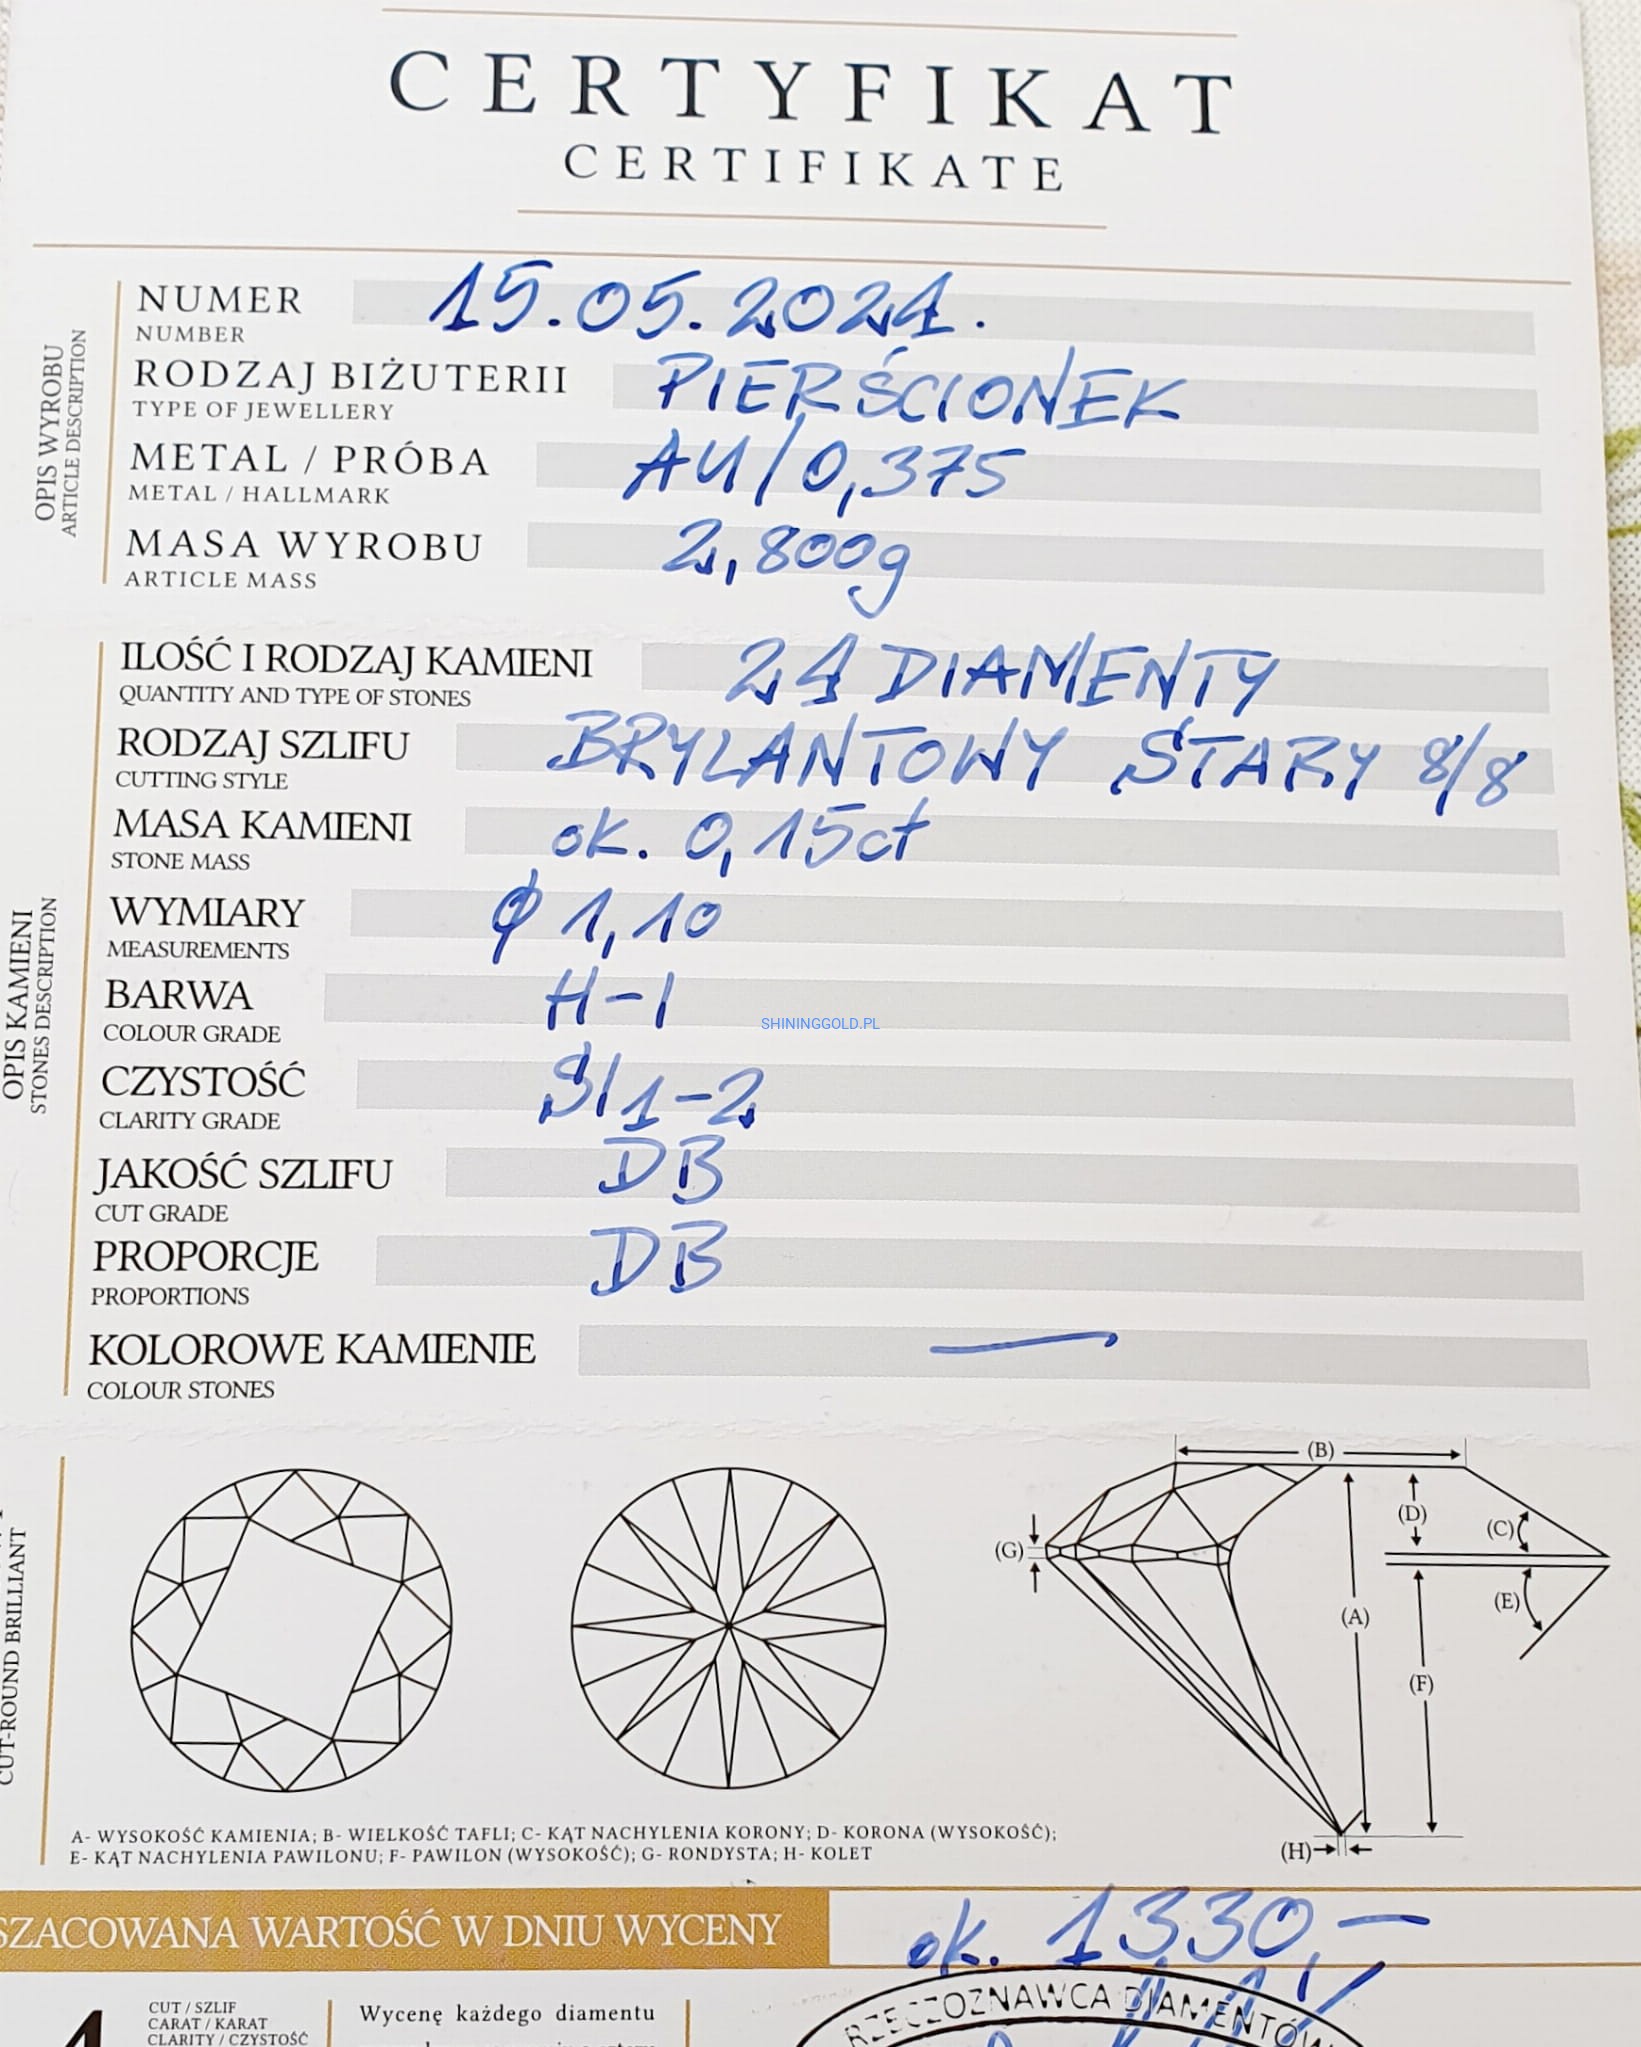 CERTYFIKAT
CERTIFIKATE
OPIS WYROBU
ARTICLE DESCRIPTION
NUMER 15.05.2024.
NUMBER
RODZAJ BIŻUTERII PIERŚCIONEK
TYPE OF JEWELLERY
METAL / PRÓBA AU/0,375
METAL / HALLMARK
MASA WYROBU 2,800g
ARTICLE MASS
OPIS KAMIENI
STONES DESCRIPTION
ILOŚĆ I RODZAJ KAMIENI 24 DIAMENTY
QUANTITY AND TYPE OF STONES
RODZAJ SZLIFU BRYLANTOWY STARY 8/8
CUTTING STYLE
MASA KAMIENI ok. 0,15ct
STONE MASS
WYMIARY ϕ 1,10
MEASUREMENTS
BARWA H-I
COLOUR GRADE
SHININGGOLD.PL
CZYSTOŚĆ SI1-2
CLARITY GRADE
JAKOŚĆ SZLIFU DB
CUT GRADE
PROPORCJE DB
PROPORTIONS
KOLOROWE KAMIENIE —
COLOUR STONES
CUT-ROUND BRILLIANT
(B)
(D)
(C)
(G)
(E)
(A)
(F)
(H)
A- WYSOKOŚĆ KAMIENIA; B- WIELKOŚĆ TAFLI; C- KĄT NACHYLENIA KORONY; D- KORONA (WYSOKOŚĆ);
E- KĄT NACHYLENIA PAWILONU; F- PAWILON (WYSOKOŚĆ); G- RONDYSTA; H- KOLET
SZACOWANA WARTOŚĆ W DNIU WYCENY ok. 1330,-
4
CUT / SZLIF
CARAT / KARAT
CLARITY / CZYSTOŚĆ
Wycenę każdego diamentu
RZECZOZNAWCA DIAMENTÓW